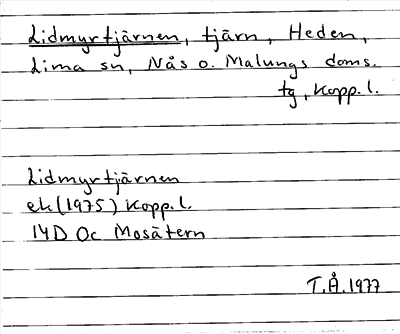 Lidmyrtjärnen, tjärn, Heden,
Lima sn, Nås o. Malungs doms.
tg, Kopp. l.
Lidmyrtjärnen
ek (1975) Kopp. l.
14D Oc Mosätern
T.Å. 1977